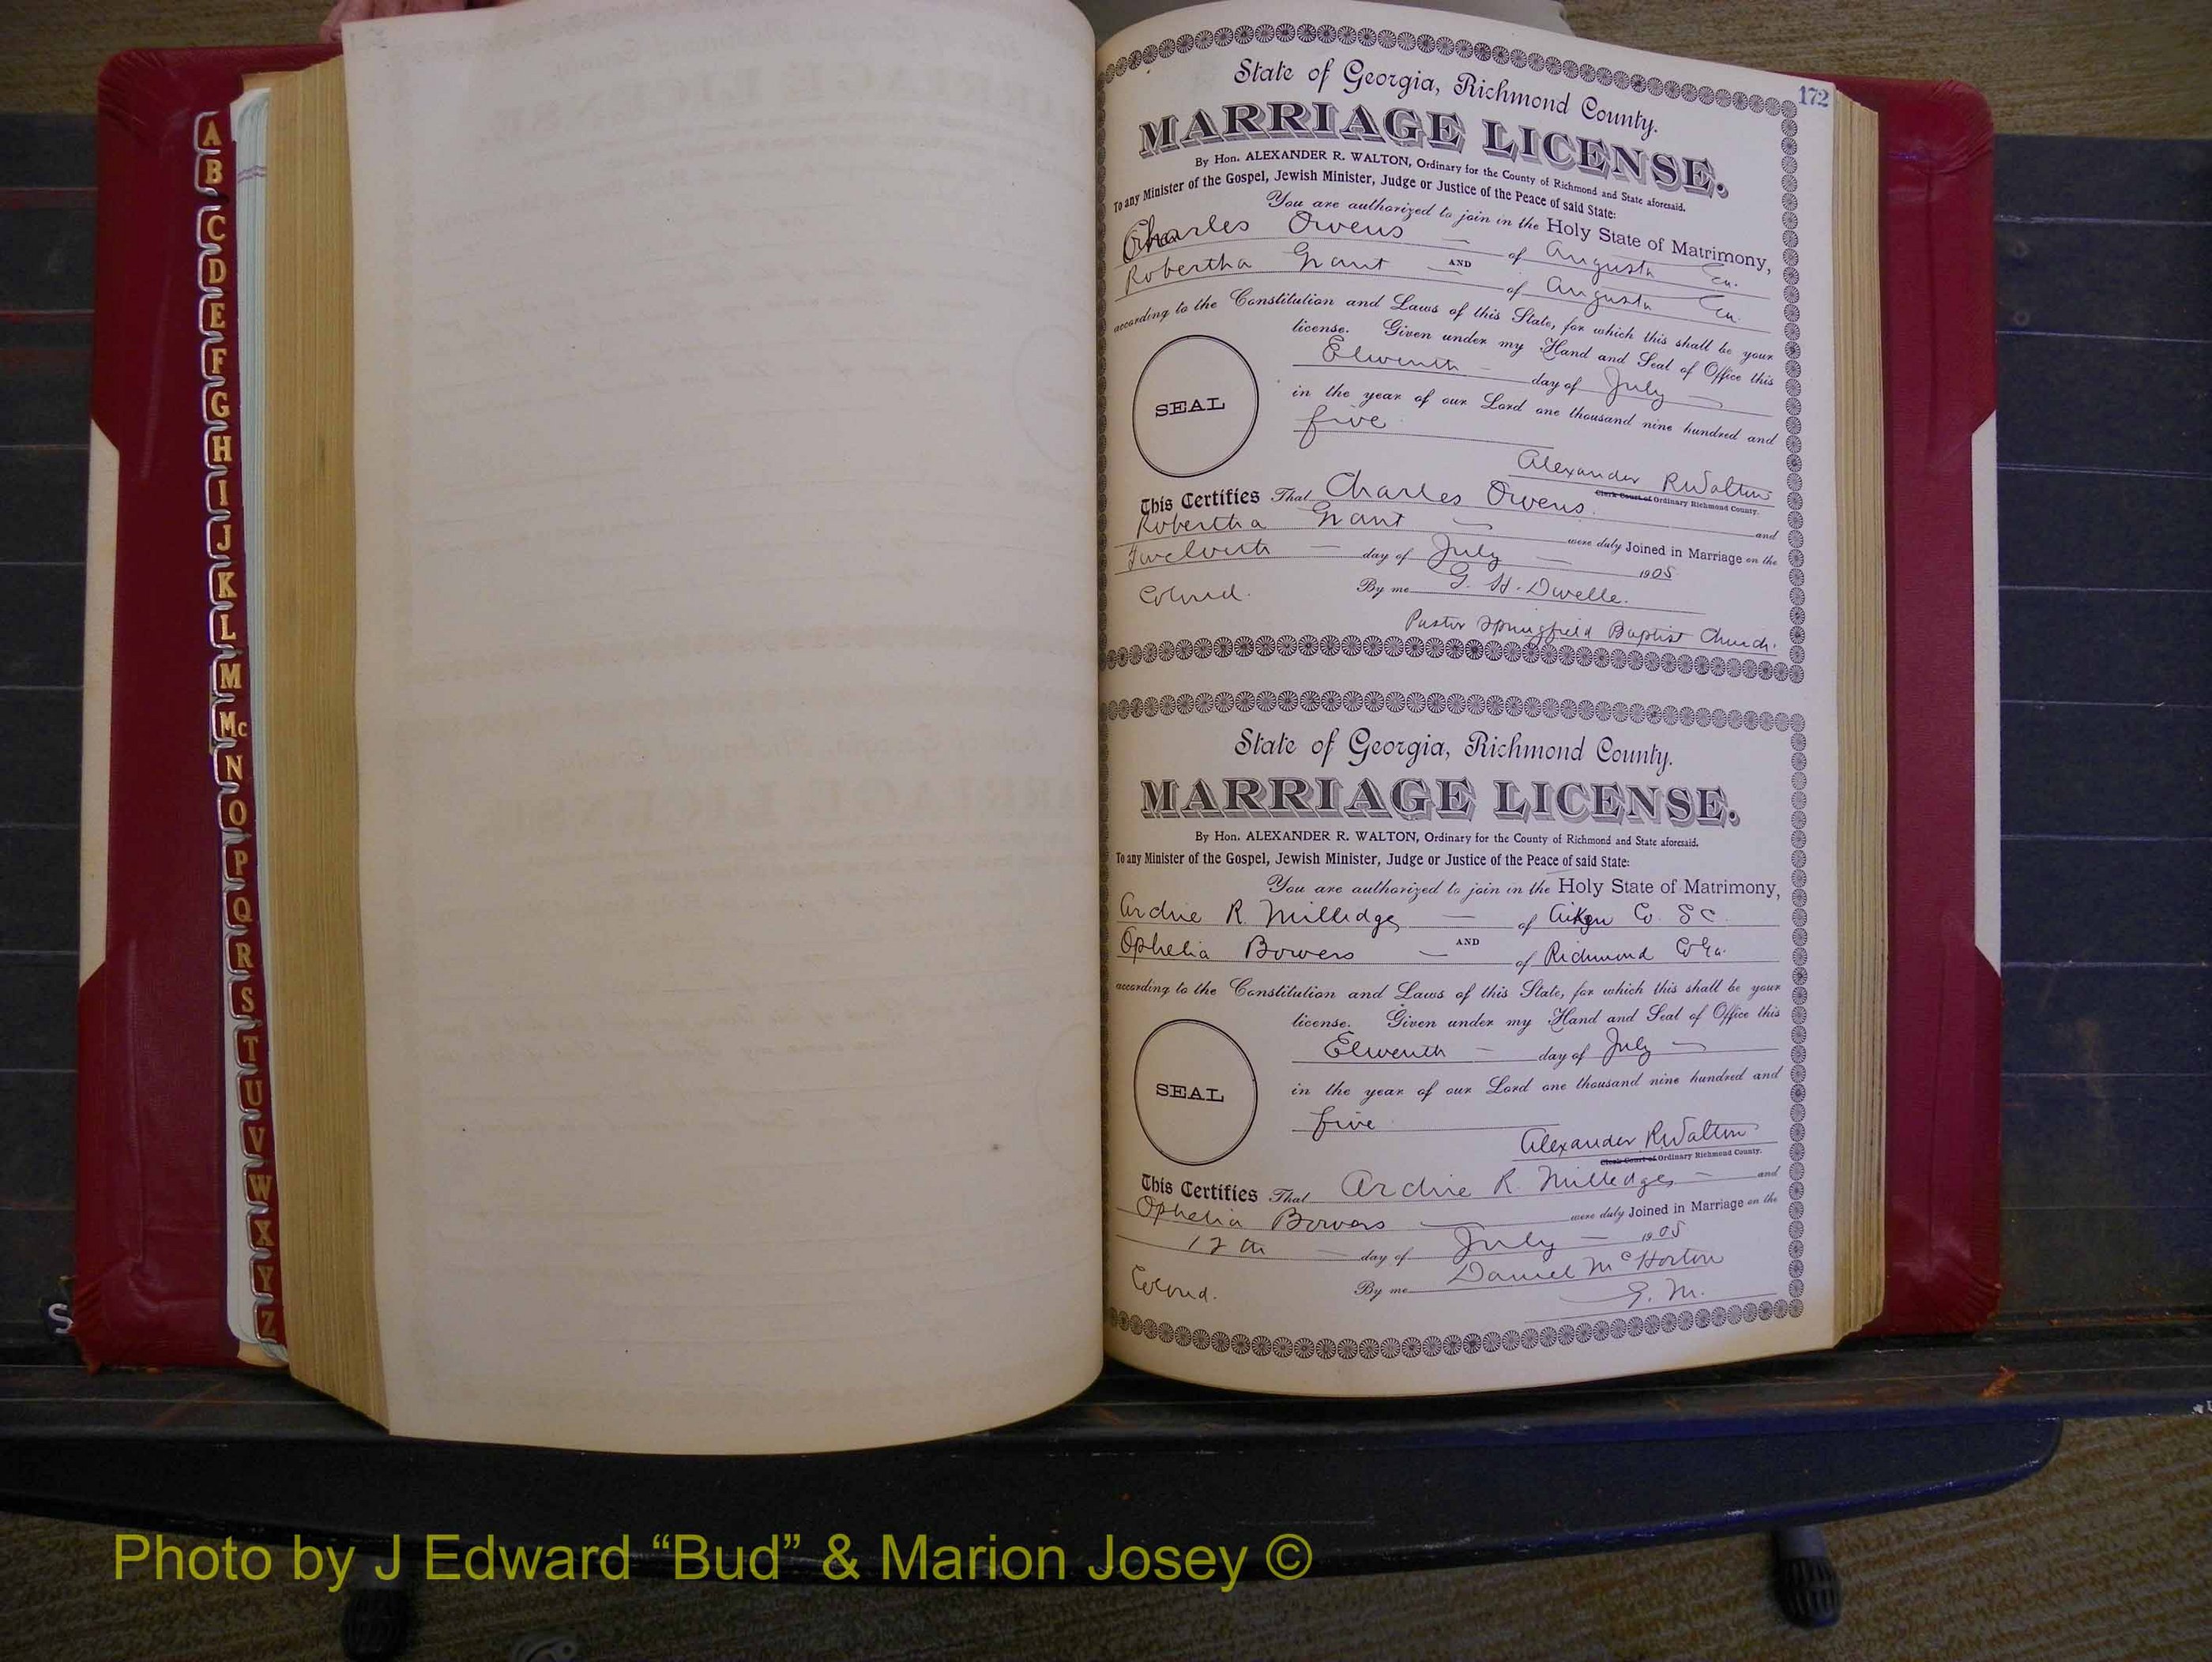 A
B
C
D
E
F
G
H
I
J
K
L
M
Mc
N
O
P
Q
R
S
T
U
V
W
X
Y
Z
S
172
State of Georgia, Richmond County.
MARRIAGE LICENSE.
By Hon. ALEXANDER R. WALTON, Ordinary for the County of Richmond and State aforesaid.
To any Minister of the Gospel, Jewish Minister, Judge or Justice of the Peace of said State:
You are authorized to join in the Holy State of Matrimony,
Charles Owens of Augusta Ga.
AND
Robertha Grant of Augusta Ga.
according to the Constitution and Laws of this State, for which this shall be your
license. Given under my Hand and Seal of Office this
Eleventh day of July
in the year of our Lord one thousand nine hundred and
five
SEAL
Alexander R Walton
Clerk Court of Ordinary Richmond County.
This Certifies That Charles Owens and
Robertha Grant were duly Joined in Marriage on the
Twelveth day of July 1905
Colored. By me G. W. Dwelle.
Pastor Springfield Baptist Church.
State of Georgia, Richmond County.
MARRIAGE LICENSE.
By Hon. ALEXANDER R. WALTON, Ordinary for the County of Richmond and State aforesaid.
To any Minister of the Gospel, Jewish Minister, Judge or Justice of the Peace of said State:
You are authorized to join in the Holy State of Matrimony,
Archie R. Milledge of Aiken Co. S C.
AND
Ophelia Bowers of Richmond Co Ga.
according to the Constitution and Laws of this State, for which this shall be your
license. Given under my Hand and Seal of Office this
Eleventh day of July
in the year of our Lord one thousand nine hundred and
five
SEAL
Alexander R Walton
Clerk Court of Ordinary Richmond County.
This Certifies That Archie R. Milledge and
Ophelia Bowers were duly Joined in Marriage on the
12th day of July 1905
Colored. By me Daniel McHorton
G. M.
Photo by J Edward “Bud” & Marion Josey ©